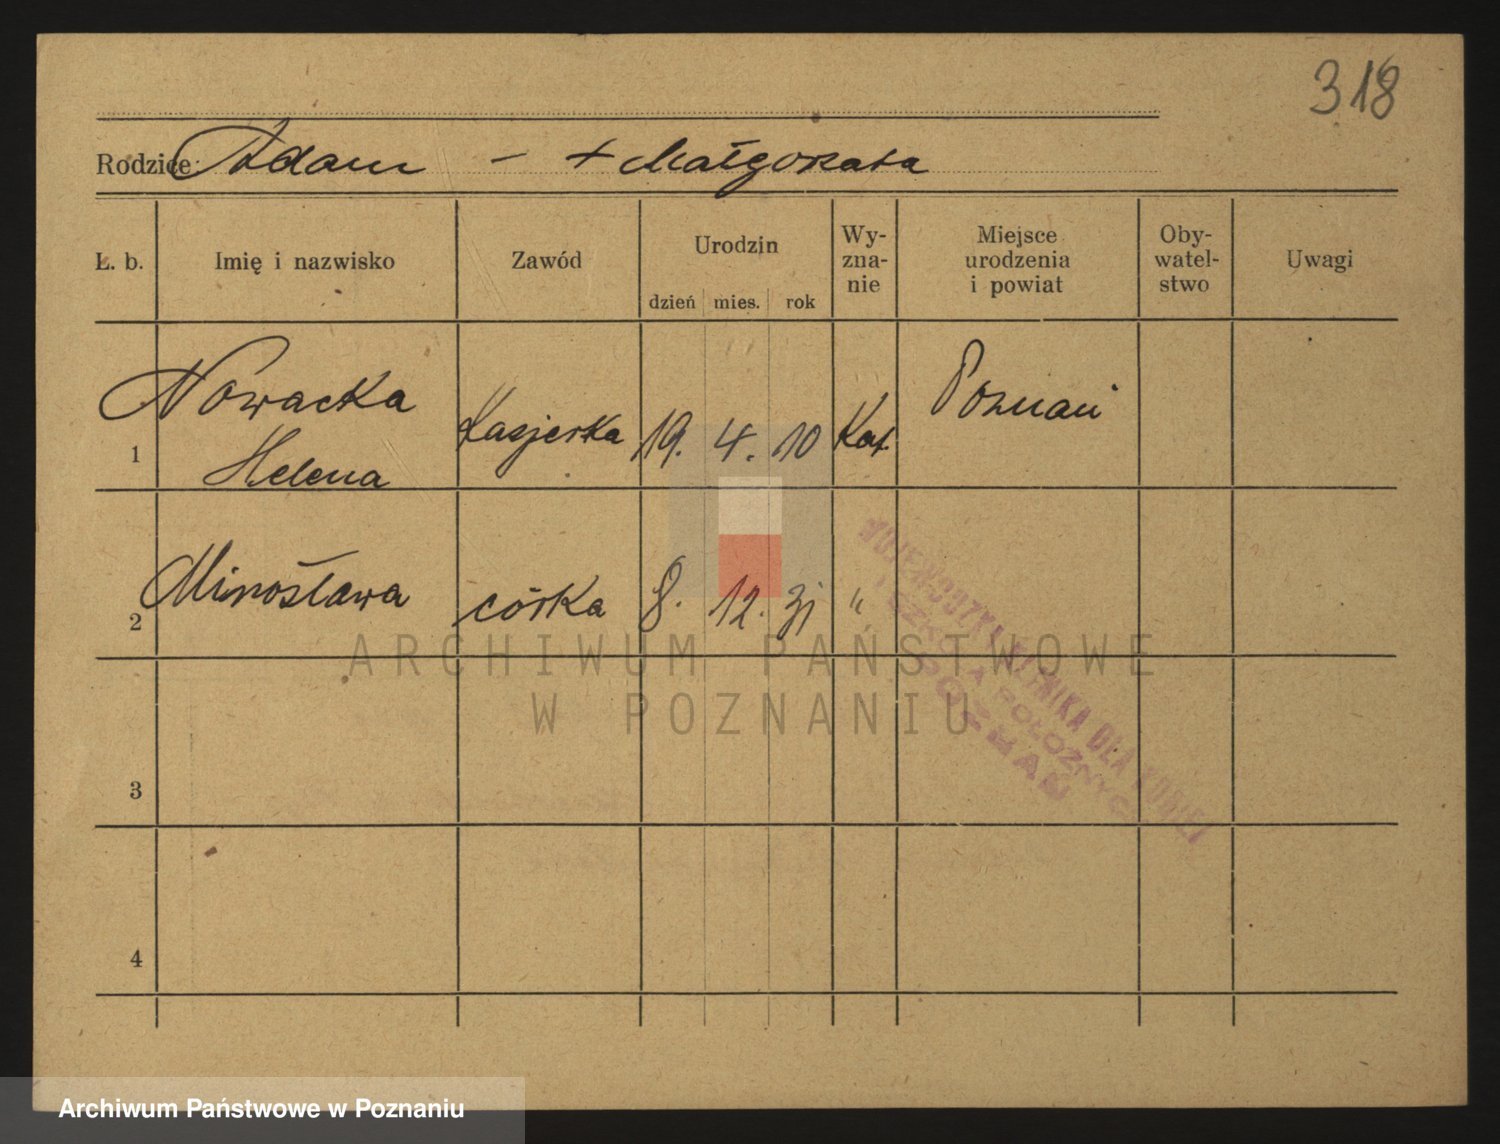 318
Rodzice: Adam – + Małgorzata
Ł. b. Imię i nazwisko Zawód Urodzin dzień mies. rok Wy-zna-nie Miejsce urodzenia i powiat Oby-watel-stwo Uwagi
1 Nowacka Helena Kasjerka 19. 4. 10 Kat. Poznań
2 Mirosława córka 8. 12. 31 "
3
4
WOJEWÓDZKA KLINIKA DLA KOBIET
I SZKOŁA POŁOŻNYCH
POZNAŃ
ARCHIWUM PAŃSTWOWE
W POZNANIU
Archiwum Państwowe w Poznaniu